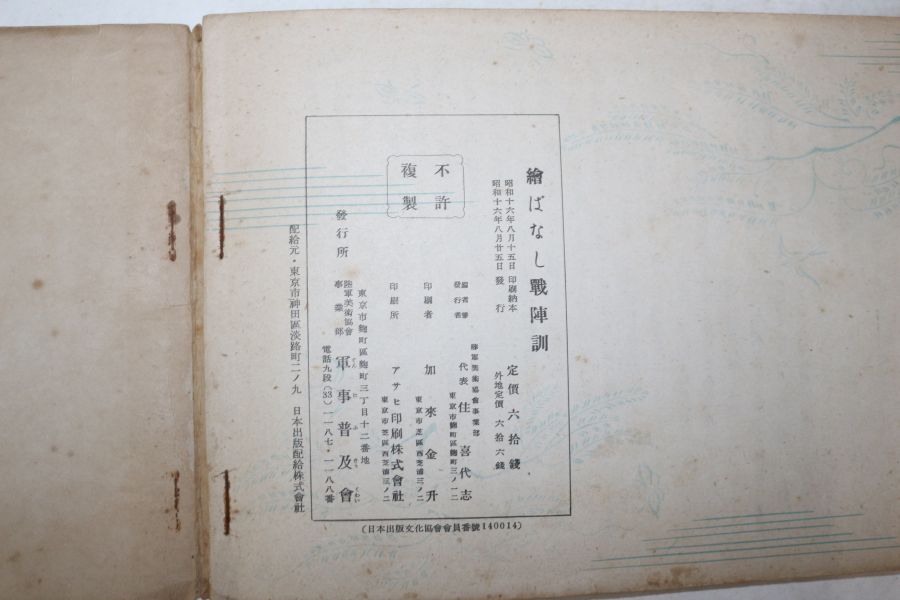 繪ばなし戰陣訓
昭和十六年八月十五日 印刷納本
昭和十六年八月廿五日 發行
定價六拾錢
外地定價 六拾六錢
陸軍美術協會事業部
發行者 代表 住喜代志
東京市麴町區麴町三ノ一二
印刷者 加來金升
東京市芝區西芝浦三ノ二
印刷所 アサヒ印刷株式會社
東京市芝區西芝浦三ノ二
不許複製
東京市麴町區麴町三丁目十二番地
發行所 陸軍美術協會事業部 軍事普及會
電話九段(33)一一八七・一一八八番
配給元・東京市神田區淡路町二ノ九 日本出版配給株式會社
(日本出版文化協會會員番號140014)